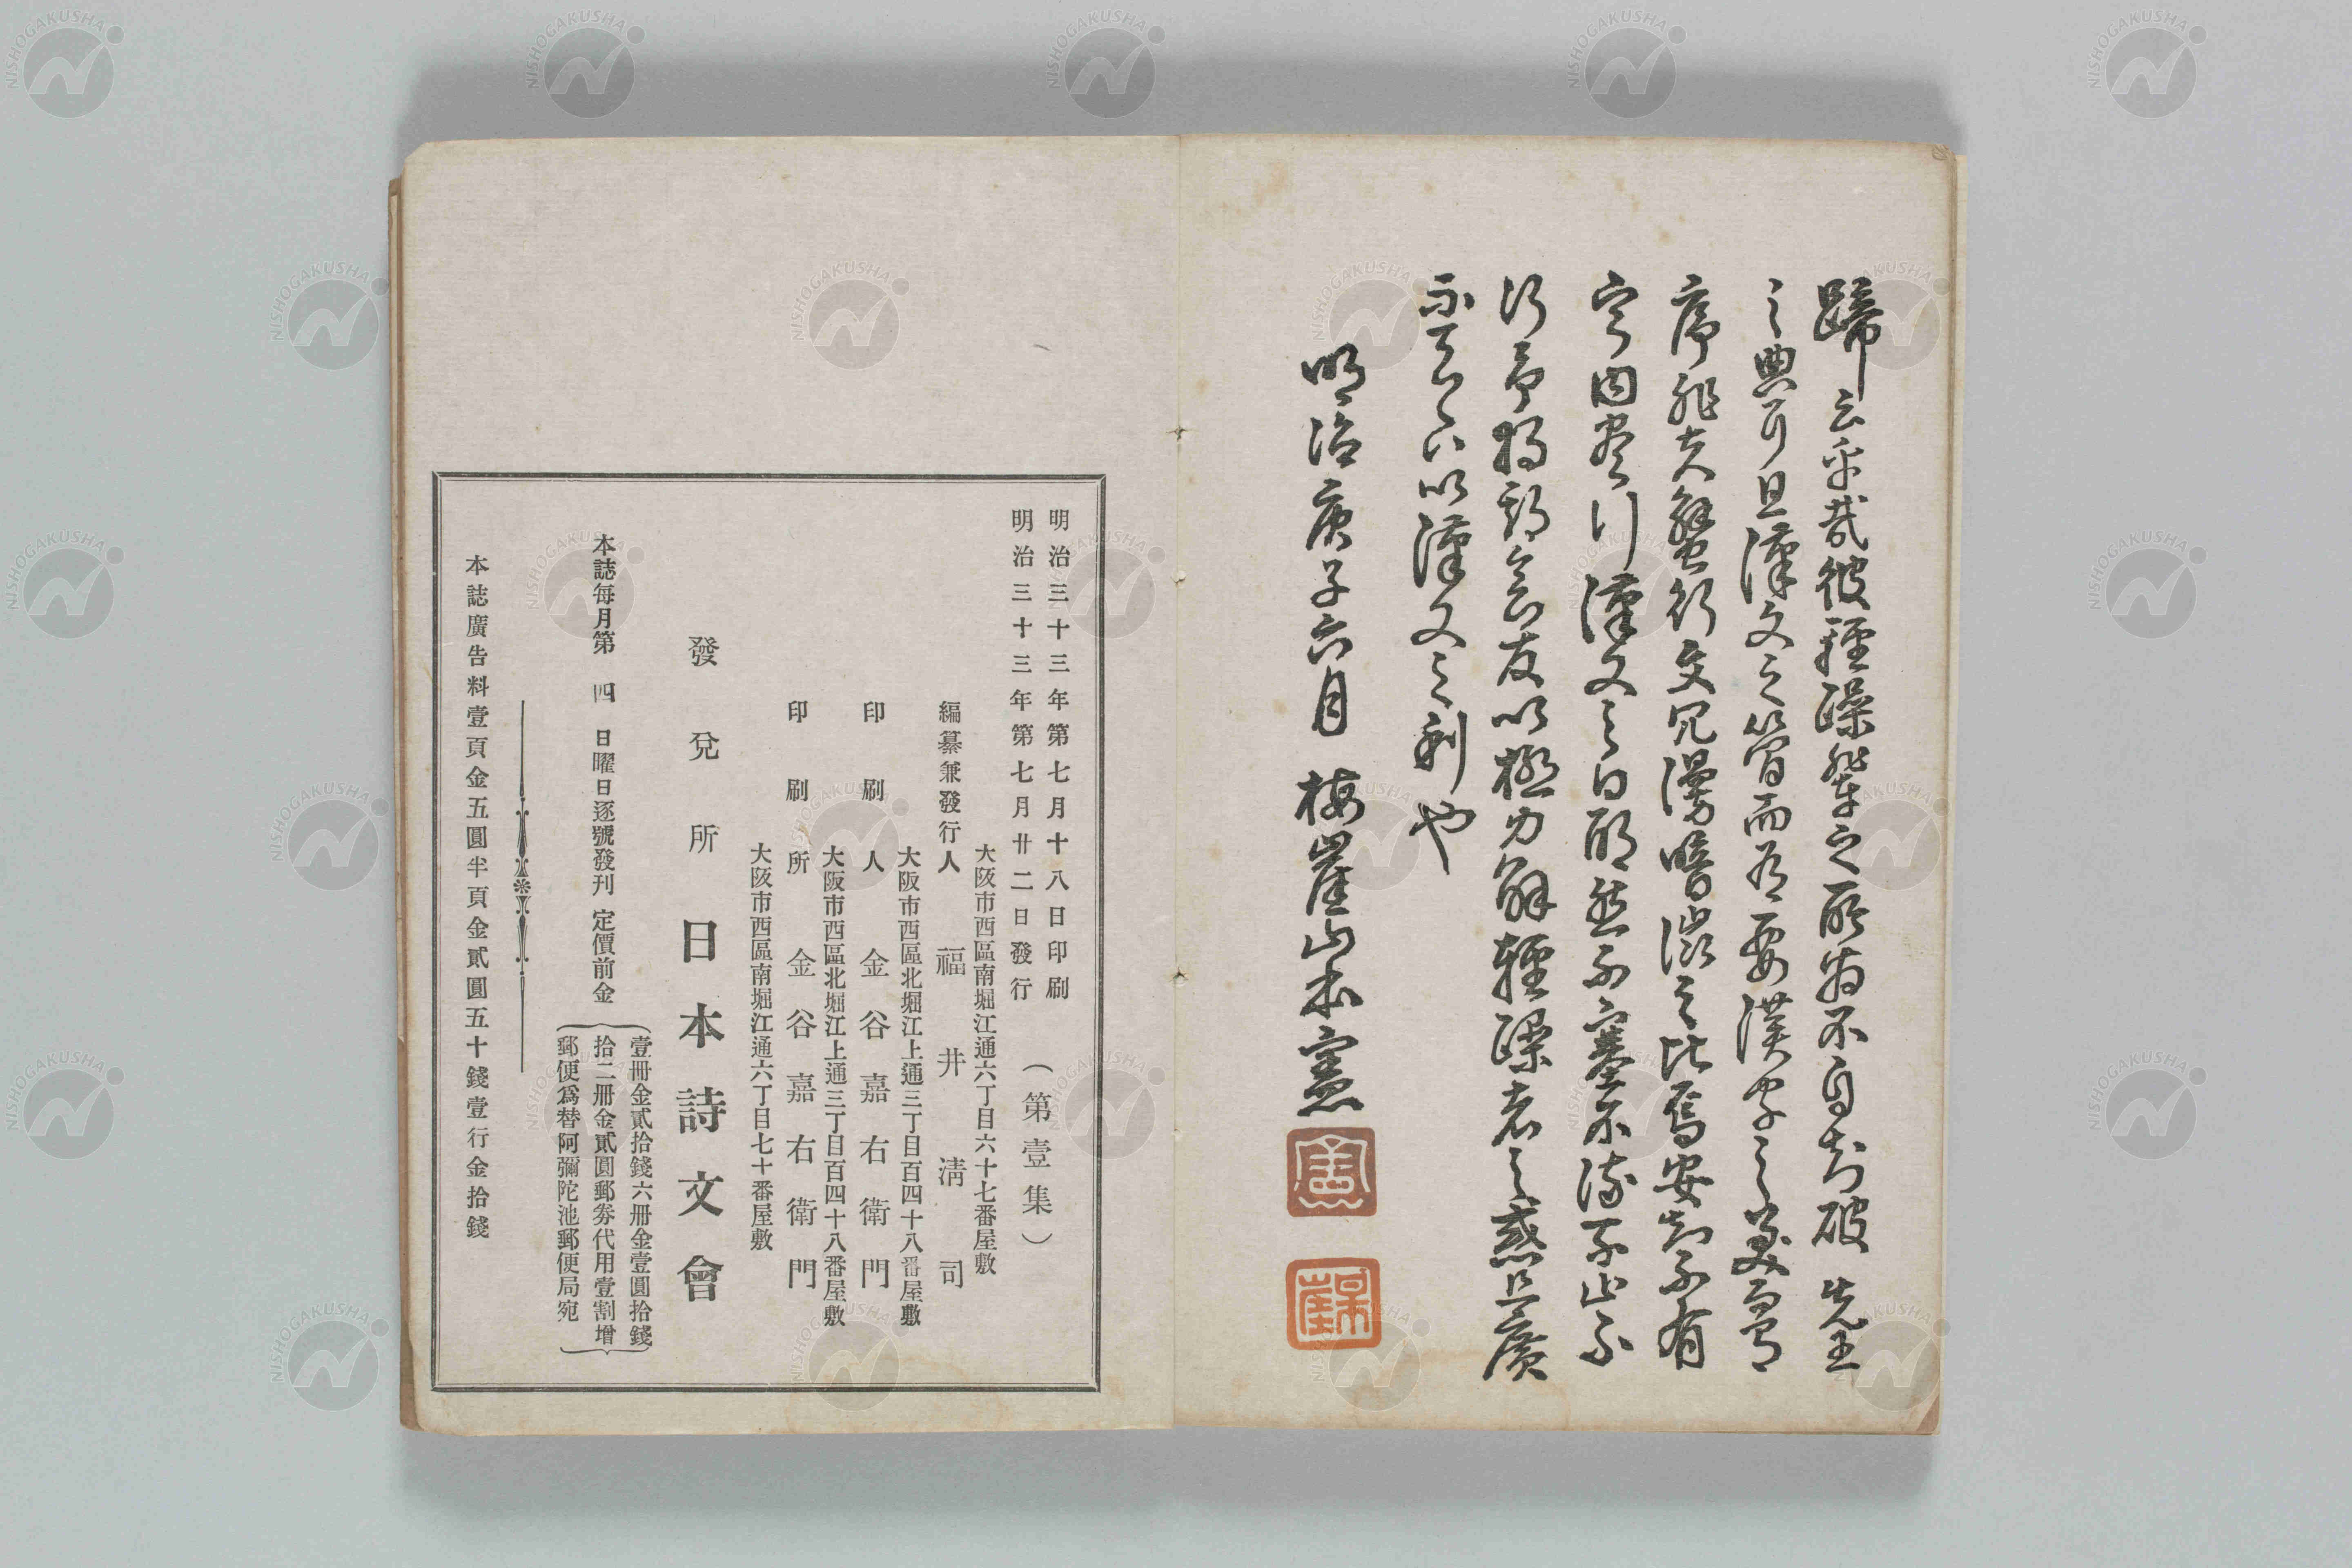 蹄云乎哉彼輕躁輩之所為不自知破先王
之典可且漢文之簡而為要漢字之美而
序非夫蟹行文冗漫暗澁之比焉安知不有
宇內盡行漢文之日耶然不塞不流不止不
行予將勸會友以極力解輕躁者之惑且廣
示天下以漢文之利也
明治庚子六月 梅崖山本憲
明治三十三年第七月十八日印刷
明治三十三年第七月廿二日發行
(第壹集)
大阪市西區南堀江通六丁目六十七番屋敷
編纂兼發行人 福井淸司
大阪市西區北堀江上通三丁目百四十八番屋敷
印刷人 金谷嘉右衛門
大阪市西區北堀江上通三丁目百四十八番屋敷
印刷所 金谷嘉右衛門
大阪市西區南堀江通六丁目七十番屋敷
發兌所 日本詩文會
本誌每月第四日曜日逐號發刊 定價前金
壹冊金貳拾錢六冊金壹圓拾錢
拾二冊金貳圓郵券代用壹割增
郵便爲替阿彌陀池郵便局宛
本誌廣告料壹頁金五圓半頁金貳圓五十錢壹行金拾錢
NISHOGAKUSHA